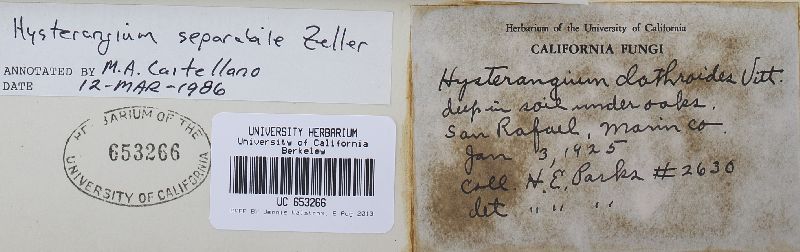 Hysterangium separabile Zeller
ANNOTATED BY M.A. Castellano
DATE 12-MAR-1986
HERBARIUM OF THE
653266
UNIVERSITY OF CALIFORNIA
UNIVERSITY HERBARIUM
University of California
Berkeley
UC 653266
Herbarium of the University of California
CALIFORNIA FUNGI
Hysterangium clathroides Vitt.
deep in soil under oaks.
San Rafael, Marin co.
Jan 3, 1925
coll. H.E. Parks #2630
det " " "